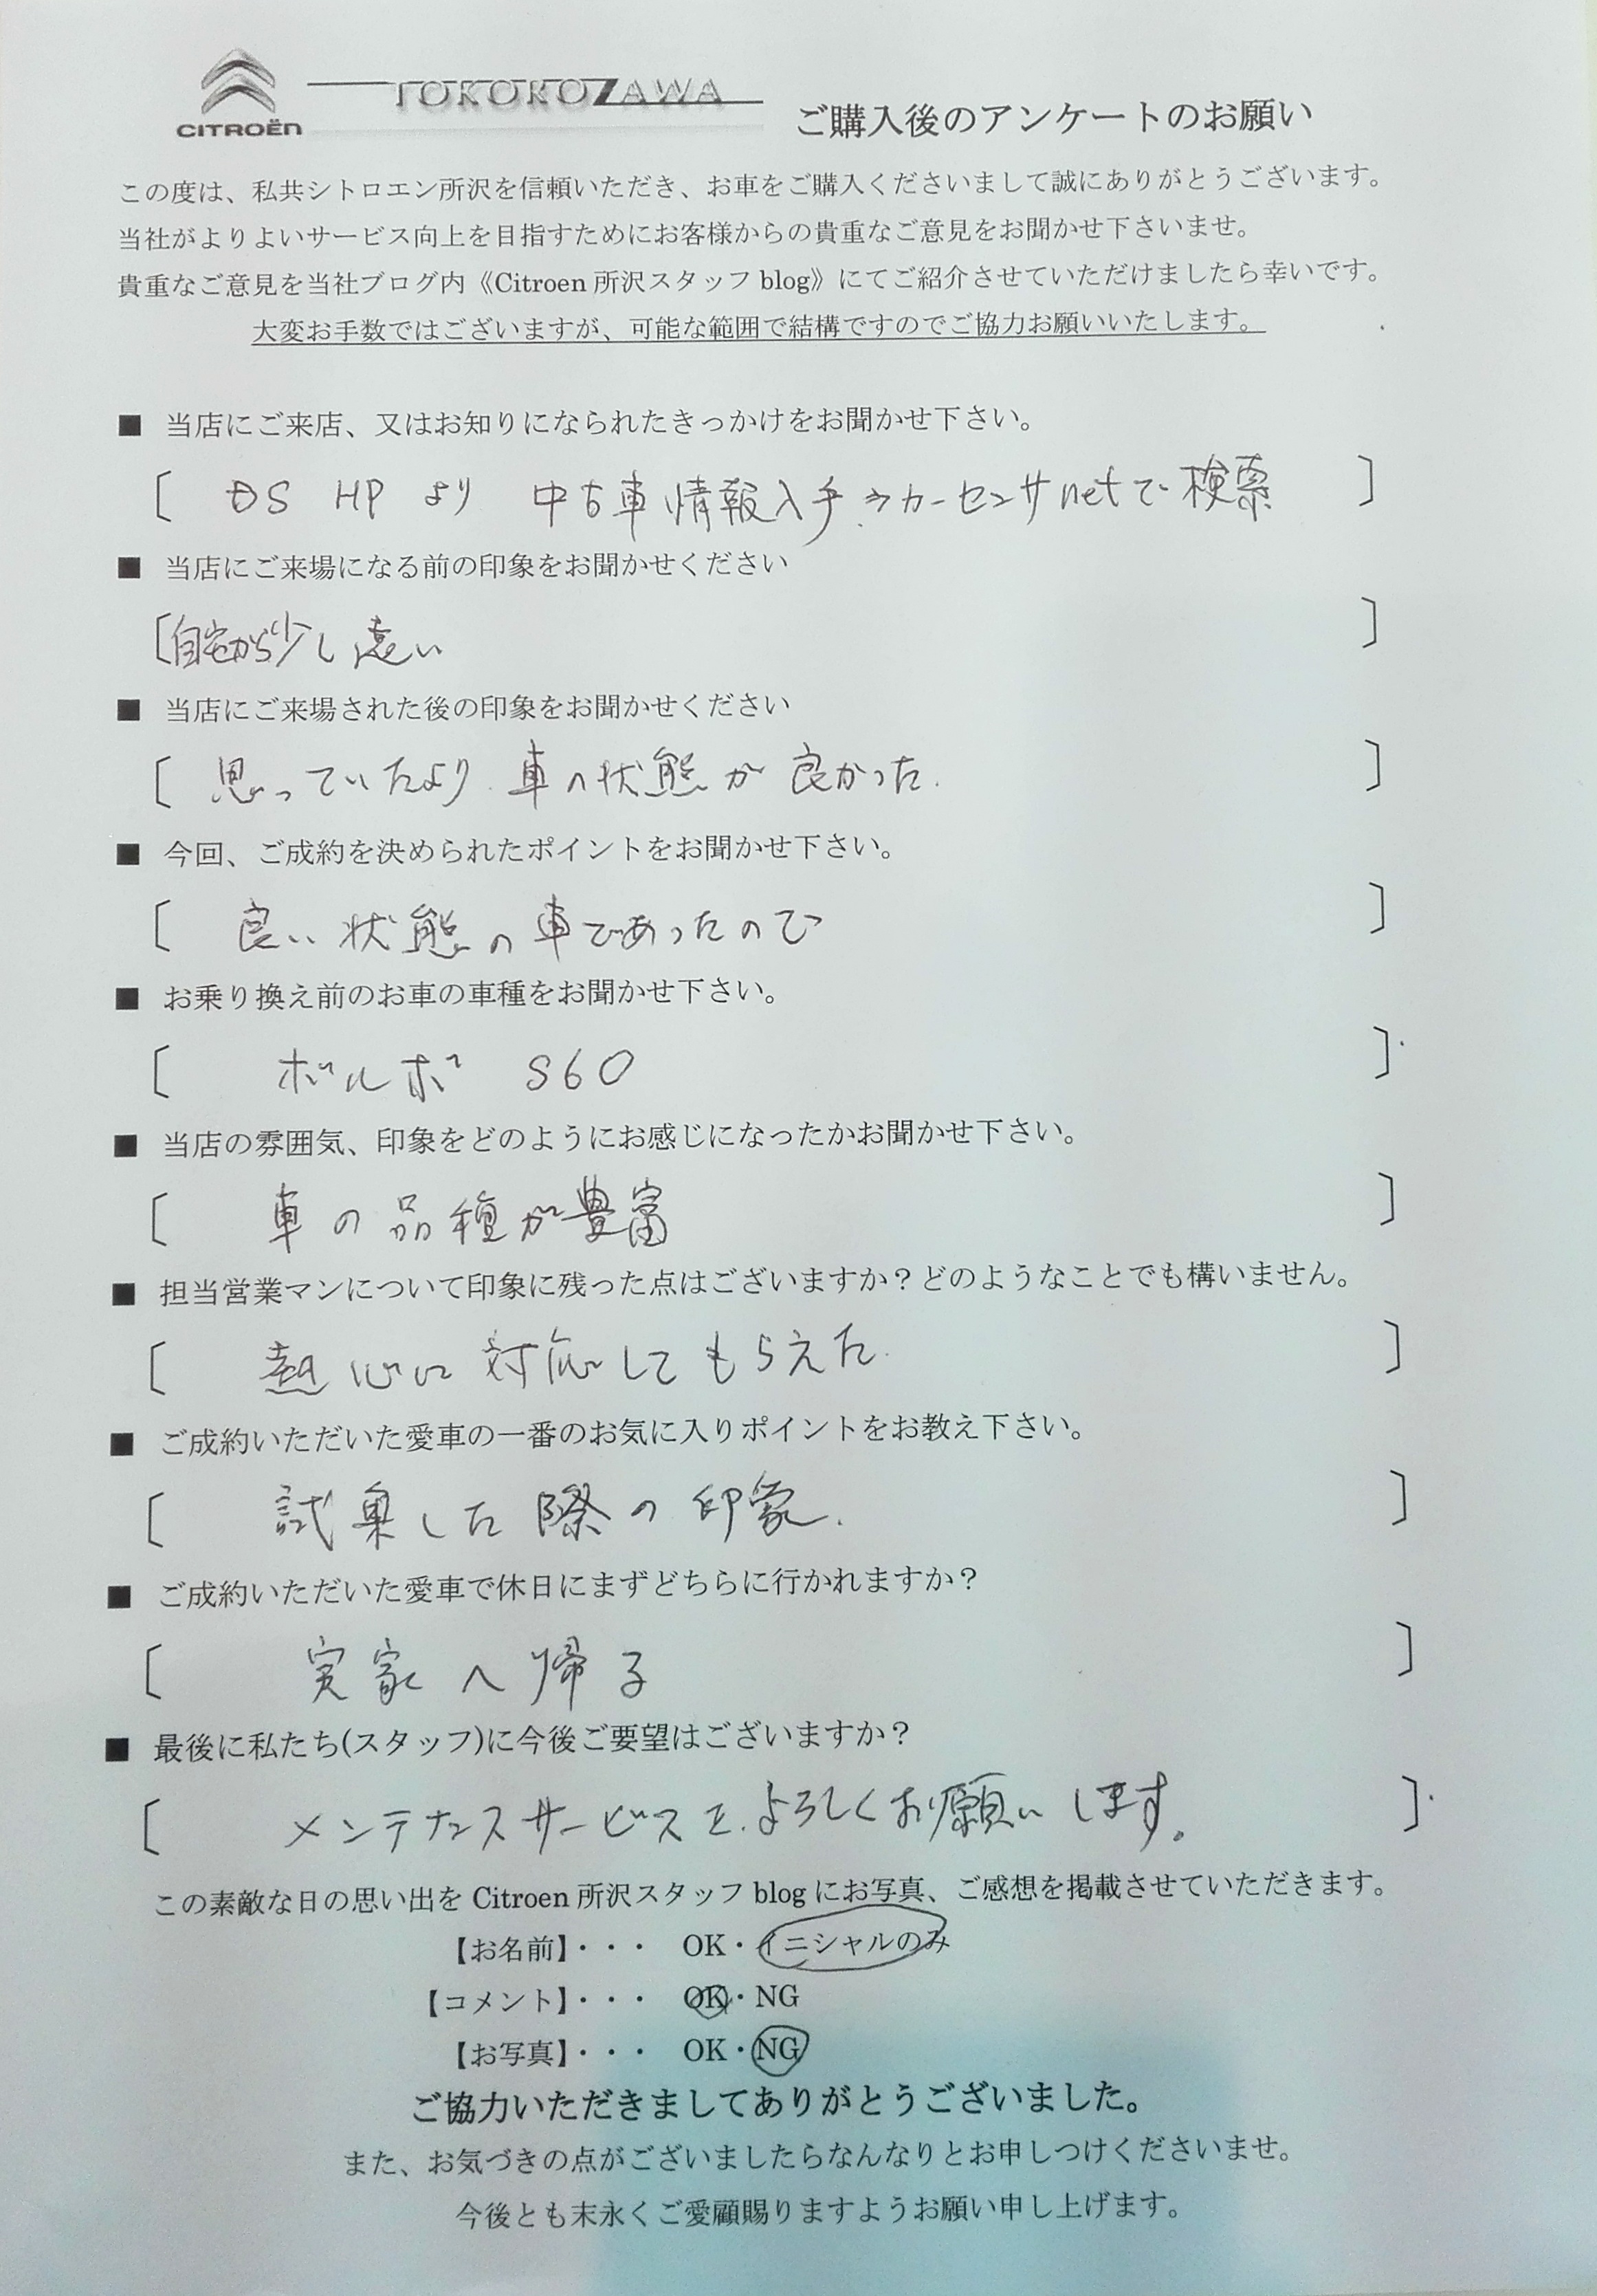 CITROËN
TOKOROZAWA
ご購入後のアンケートのお願い
この度は、私共シトロエン所沢を信頼いただき、お車をご購入くださいまして誠にありがとうございます。
当社がよりよいサービス向上を目指すためにお客様からの貴重なご意見をお聞かせ下さいませ。
貴重なご意見を当社ブログ内《Citroen 所沢スタッフ blog》にてご紹介させていただけましたら幸いです。
大変お手数ではございますが、可能な範囲で結構ですのでご協力お願いいたします。
■ 当店にご来店、又はお知りになられたきっかけをお聞かせ下さい。
〔 DS HP より 中古車情報入手⇒カーセンサnetで検索 〕
■ 当店にご来場になる前の印象をお聞かせください
〔自宅から少し遠い 〕
■ 当店にご来場された後の印象をお聞かせください
〔 思っていたより 車の状態が良かった. 〕
■ 今回、ご成約を決められたポイントをお聞かせ下さい。
〔 良い状態の車であったので 〕
■ お乗り換え前のお車の車種をお聞かせ下さい。
〔 ボルボ S60 〕
■ 当店の雰囲気、印象をどのようにお感じになったかお聞かせ下さい。
〔 車の品種が豊富 〕
■ 担当営業マンについて印象に残った点はございますか？どのようなことでも構いません。
〔 熱心に対応してもらえた. 〕
■ ご成約いただいた愛車の一番のお気に入りポイントをお教え下さい。
〔 試乗した際の印象. 〕
■ ご成約いただいた愛車で休日にまずどちらに行かれますか？
〔 実家へ帰る 〕
■ 最後に私たち(スタッフ)に今後ご要望はございますか？
〔 メンテナンスサービスを.よろしくお願いします。 〕
この素敵な日の思い出を Citroen 所沢スタッフ blog にお写真、ご感想を掲載させていただきます。
【お名前】・・・ OK・イニシャルのみ
【コメント】・・・ OK・NG
【お写真】・・・ OK・NG
ご協力いただきましてありがとうございました。
また、お気づきの点がございましたらなんなりとお申しつけくださいませ。
今後とも末永くご愛顧賜りますようお願い申し上げます。